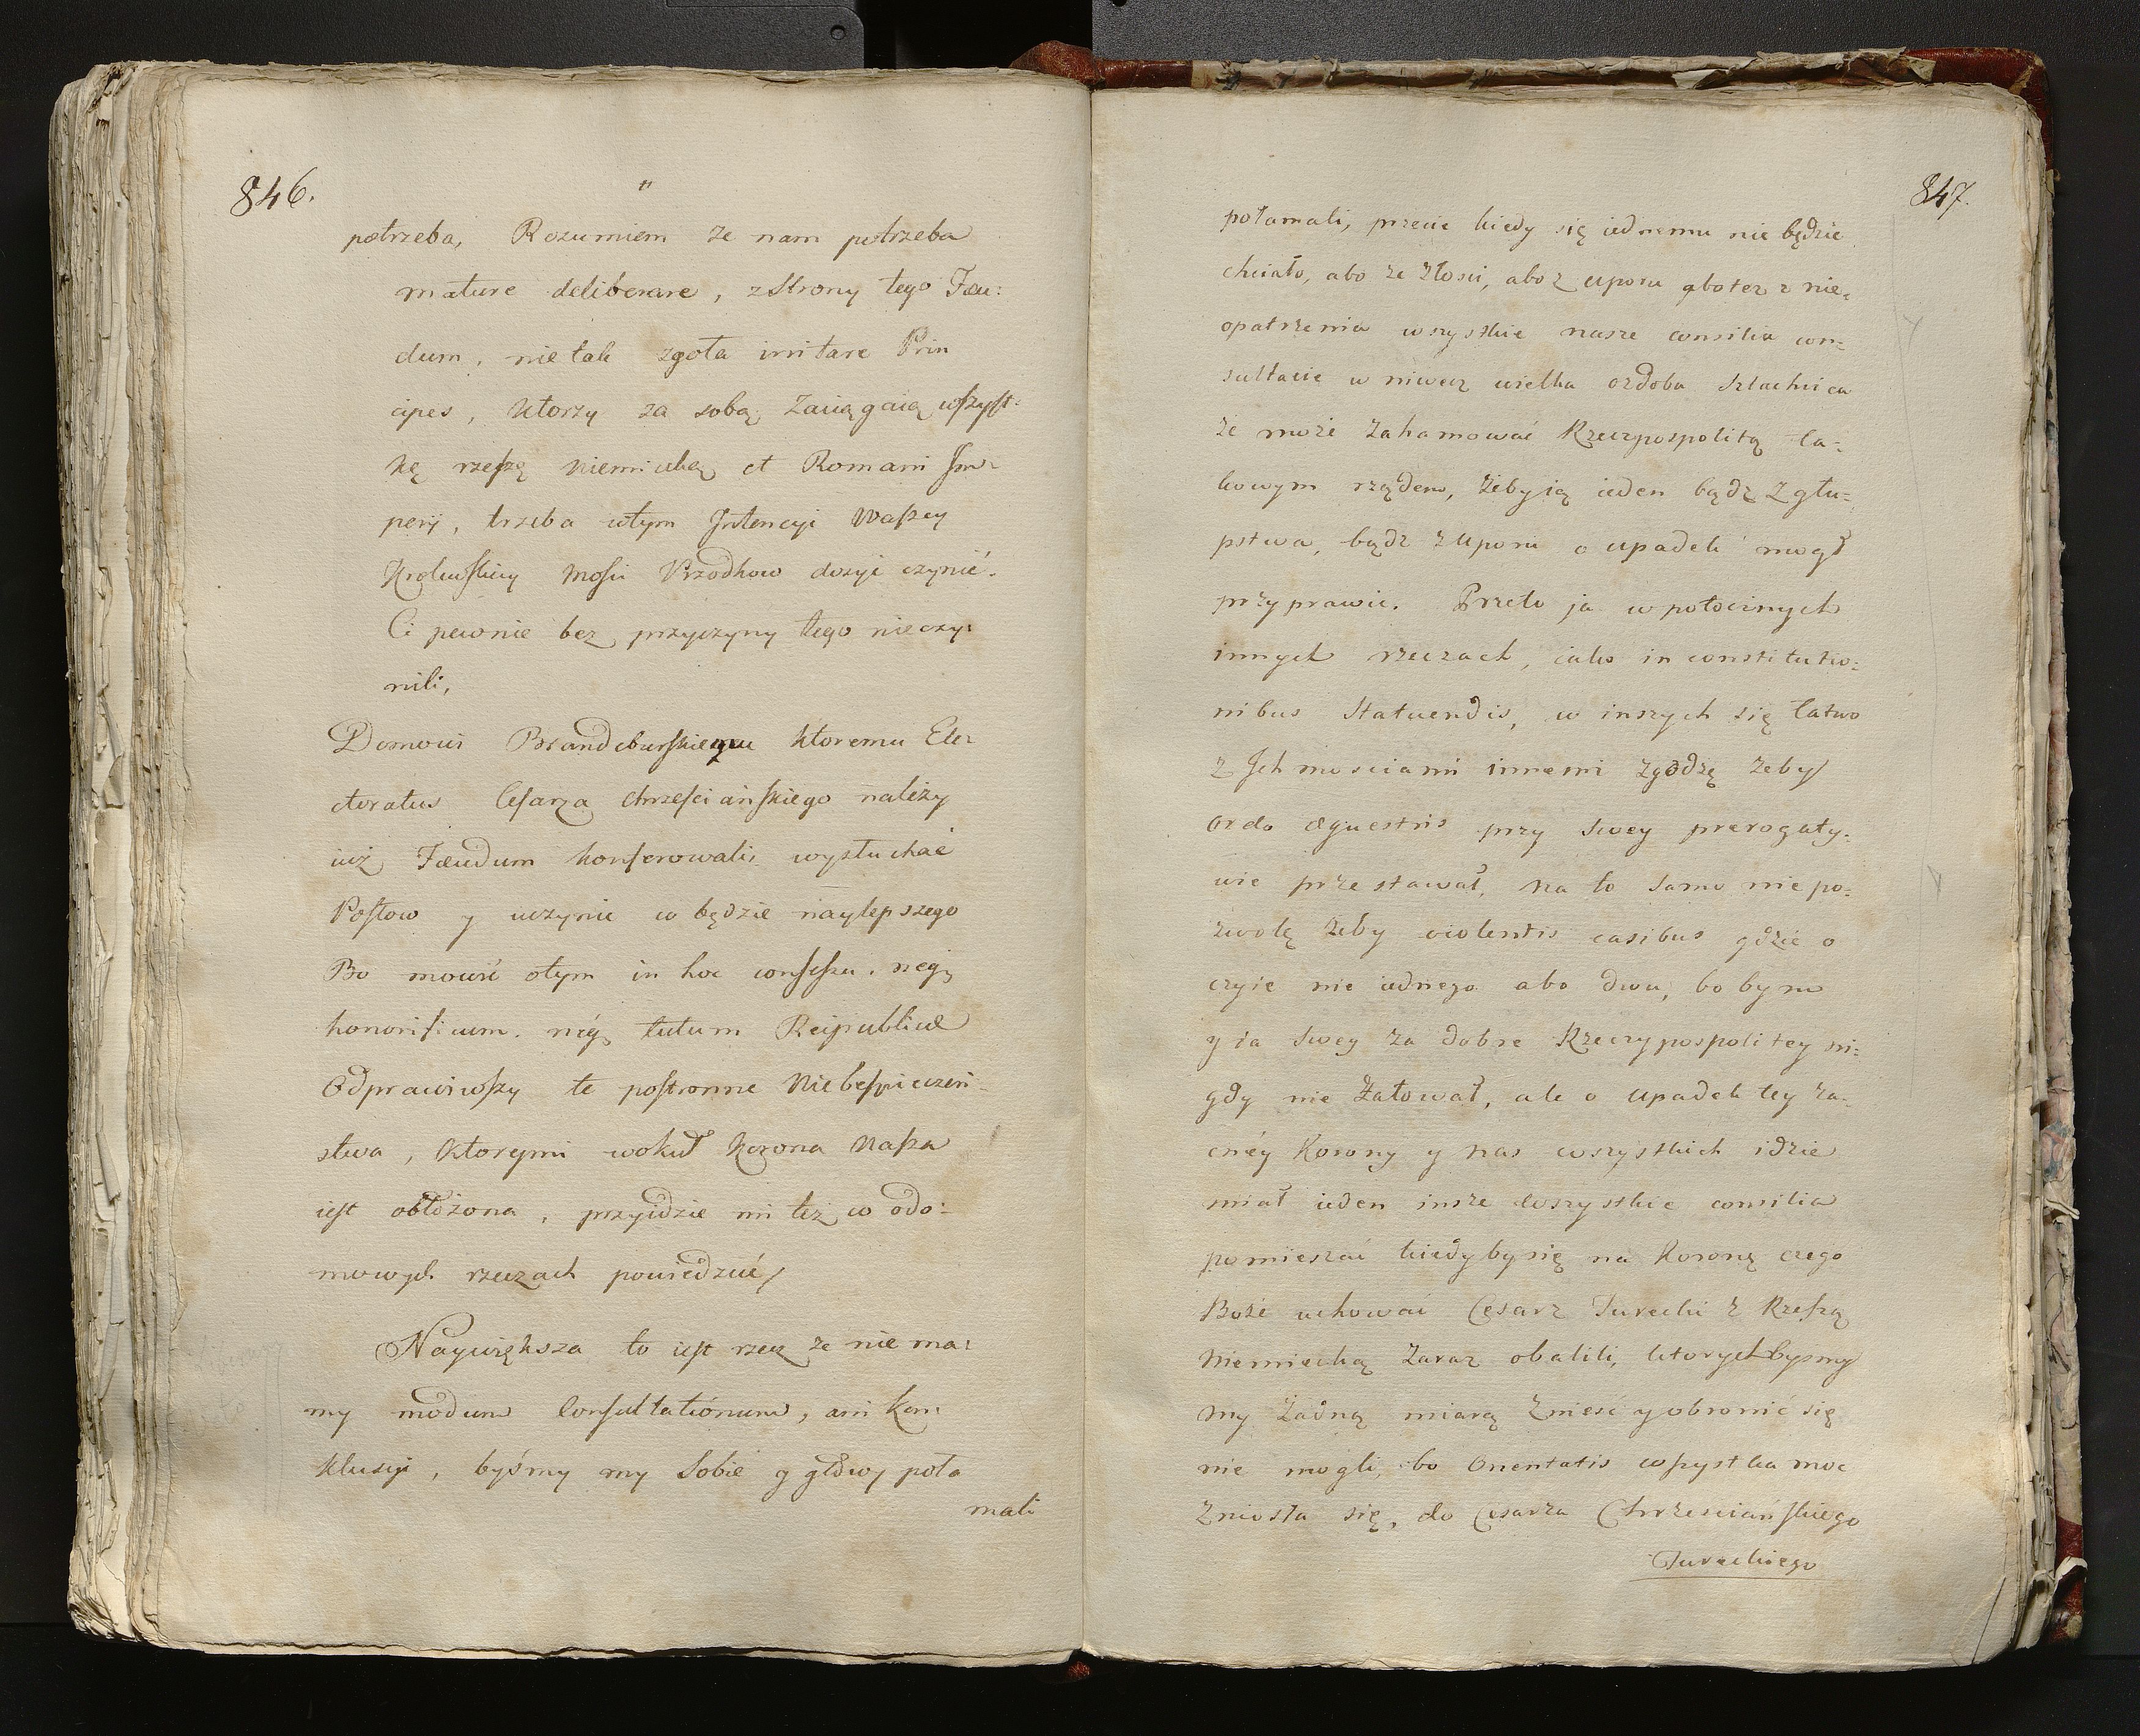 846.
potrzeba, Rozumiem że nam potrzeba
mature deliberare, z strony tego Fæu:
dum, nie tak zgoła irritare Prin
cipes, Ktorzy za sobą zaciągaią wszyst:
kę rzeszę niemiecką et Romani Im-
perij, trzeba wtym Intencyi Waszey
Krolewskiey Mosci Przodkow dosyć czynić.
Ci pewnie bez przyczyny tego nieczy:
nili,
Domowi Brandeburskiemu Ktoremu Ele:
ctoratus Cesarza chrzesciańskiego należy
iuż Fæudum konferowali, wysłuchać
Posłow y uczynić co będzie naylepszego
Bo mowić otym in hoc consessu. neq;
honorificum. neq; tutum Reipublicæ
Odprawiwszy te postronne Niebespieczeń-
stwa, Ktorymi wokuł Korona Nasza
iest obłożona, przyidzie mi też w odo:
mowych rzeczach powiedzieć,
Naywiększa to iest rzecz że nie ma:
my modum Consultationum, ani Kon:
kluzyi, byśmy my sobie y głowy poła
mali
847.
połamali, przecie kiedy się iednemu nie będzie
chciało, abo ze złości, abo z uporu abotez z nie=
opatrzenia wszystkie nasze consilia con=
sultacie w niwecz wielka ozdoba szlachcica
że może zahamować Rzeczpospolitą ta=
kowym rządem, żeby ią ieden bądź z głu=
pstwa, bądź z uporu o upadek mogł
przyprawić. Przeto ja w potocznych
innych rzeczach, iako in constitutio=
nibus statuendis, w inszych się łatwo
z Ich mosciami innemi zgodzę żeby
ordo æquestris przy swey prerogaty=
wie przestawał, na to samo niepo=
zwolę żeby violentis casibus gdzie o
szyie nie iednego abo dwu, bo bym
y ia swey za dobre Rzeczypospolitey ni=
gdy nie żałował, ale o upadek tey za-
cnéy Korony y nas wszystkich idzie
miał ieden insze wszystkie consilia
pomieszać kiedyby się na Koronę czego
Boże uchować Cesarz Turecki z Rzeszą
Niemiecką zaraz obalili, ktorychbysmy
my żadną miarą znieść y obronić się
nie mogli, bo Orientatis wszystka moc
zniosła się, do Cesarza Chrzesciańskiego
Tureckiego